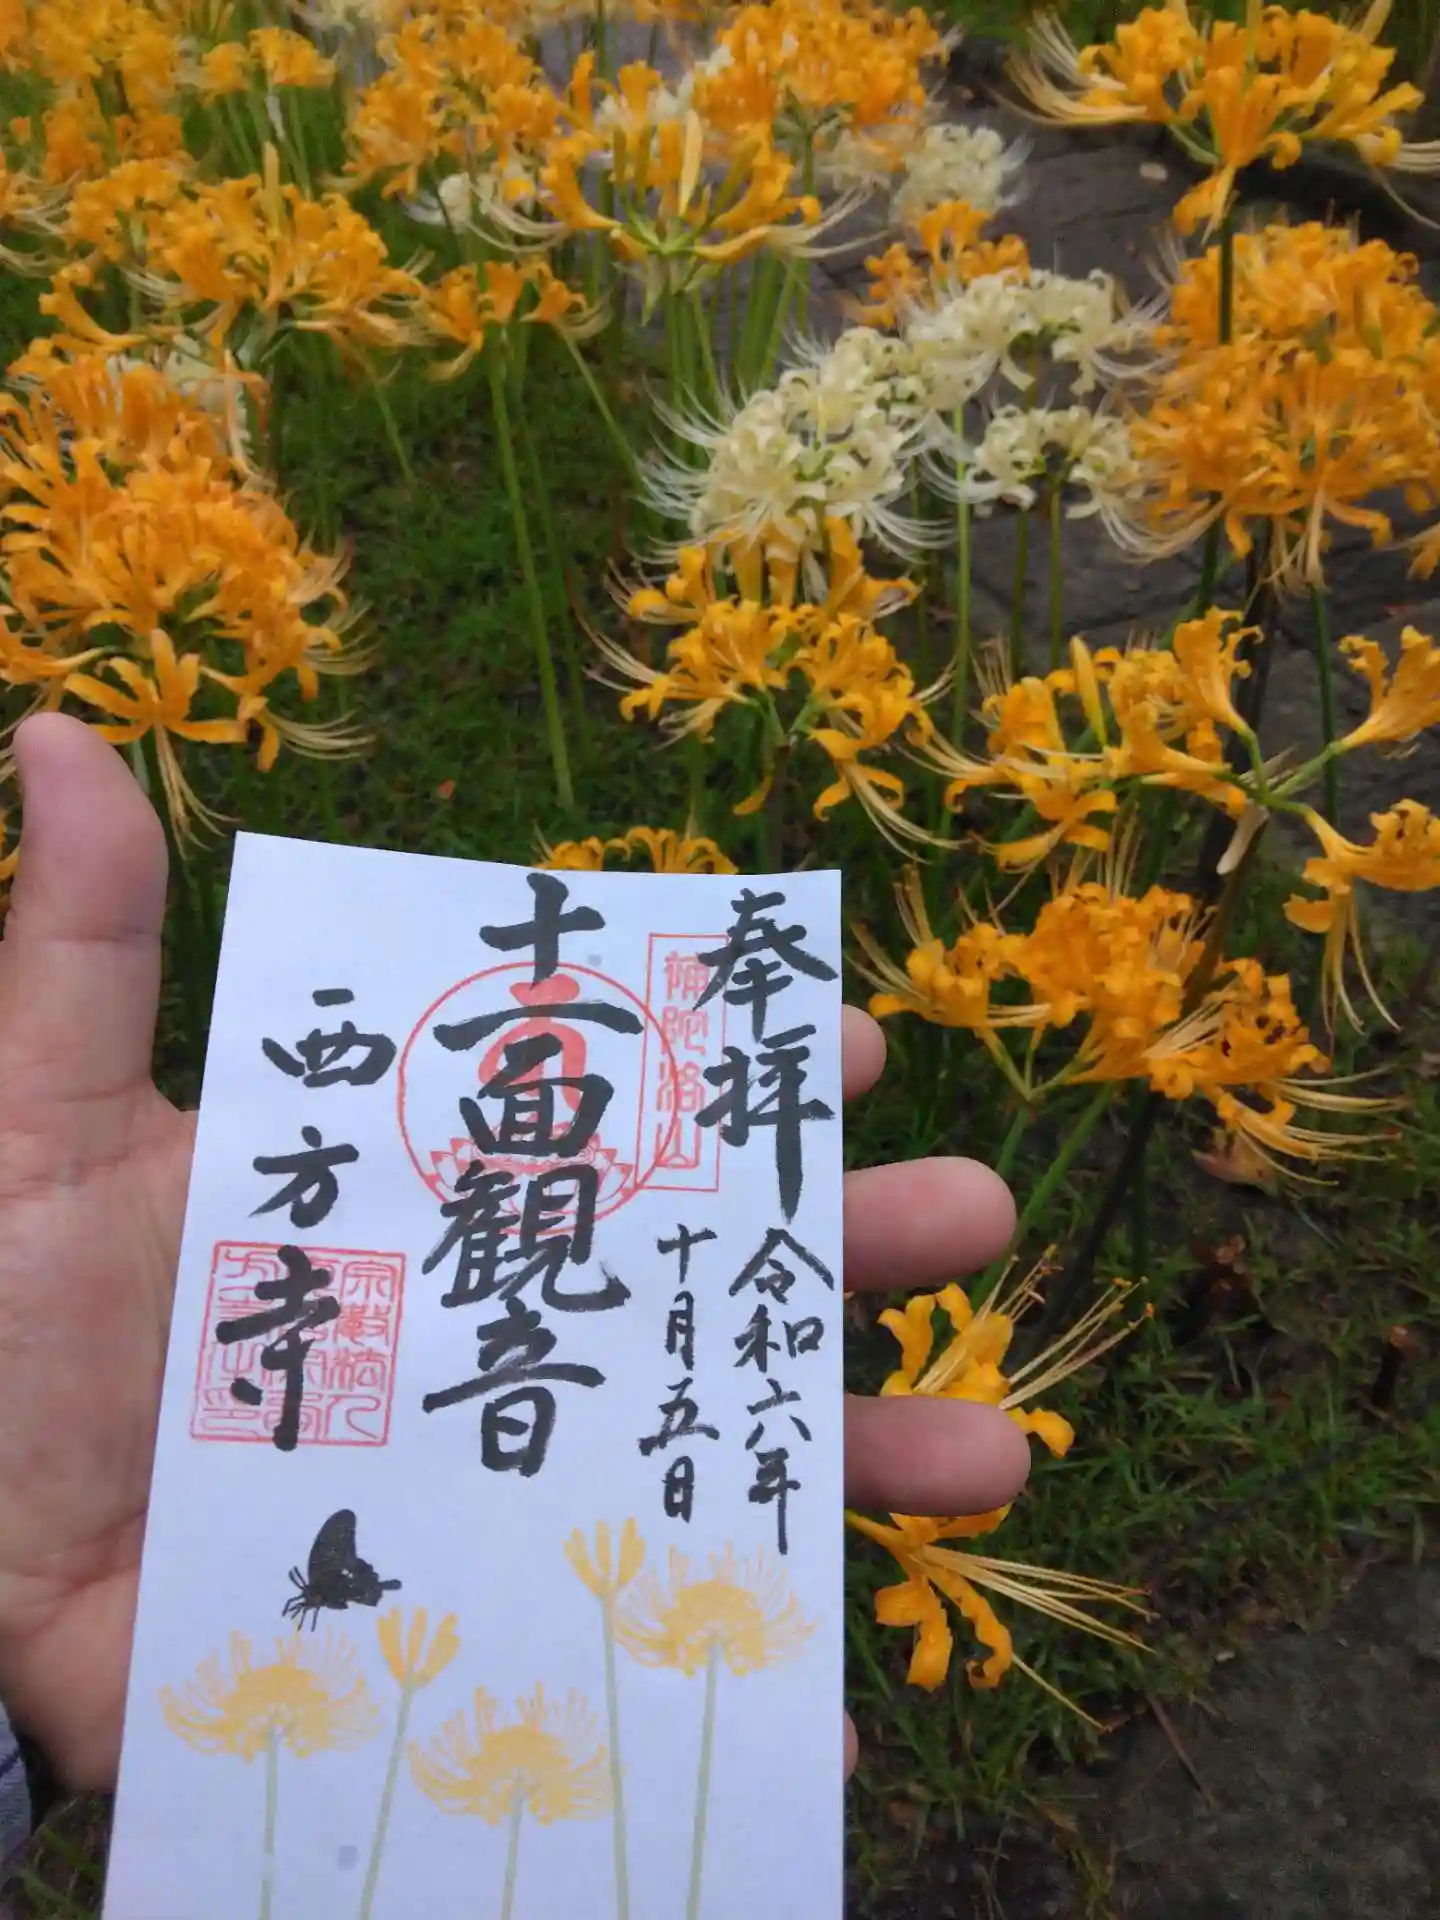 奉拝
令和六年
十月五日
補陀洛山
十一面観音
西方寺